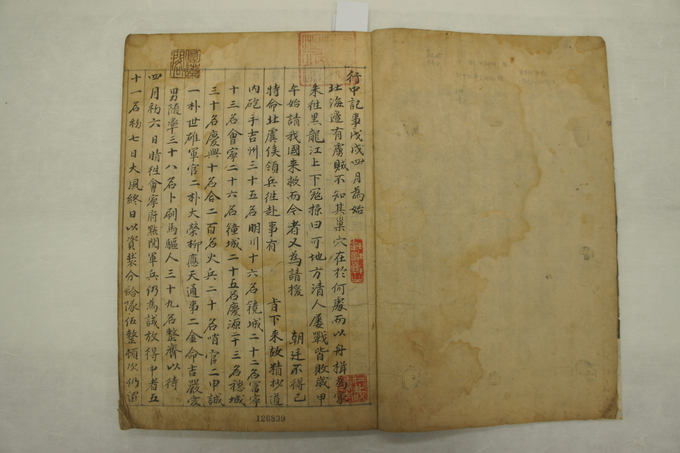 行中記事戊戌四月為始
北海邊有虜賊不知其巢穴在於何處而以舟楫為家
来徃黒龍江上下冦掠曰可地方清人屢戰皆敗歲甲
午始請我國来救而今者又為請援 朝廷不得已
特命北虞侯領兵徃赴事有 旨下来故精抄道
内砲手吉州三十五名明川十六名鏡城二十二名富寧
十三名會寧二十六名鍾城二十五名慶源二十三名穩城
三十名慶興十名合二百名火兵二十名哨官二申誠
一朴世雄軍官二朴大榮柳應天通事二金命吉嚴愛
男隨率三十八名卜刷馬驅人三十九名整齊以待
四月初六日晴徃會寧府㸃閱軍兵仍為試放得中者五
十一名初七日大風終日以資裝分給隊伍整頓以
126839